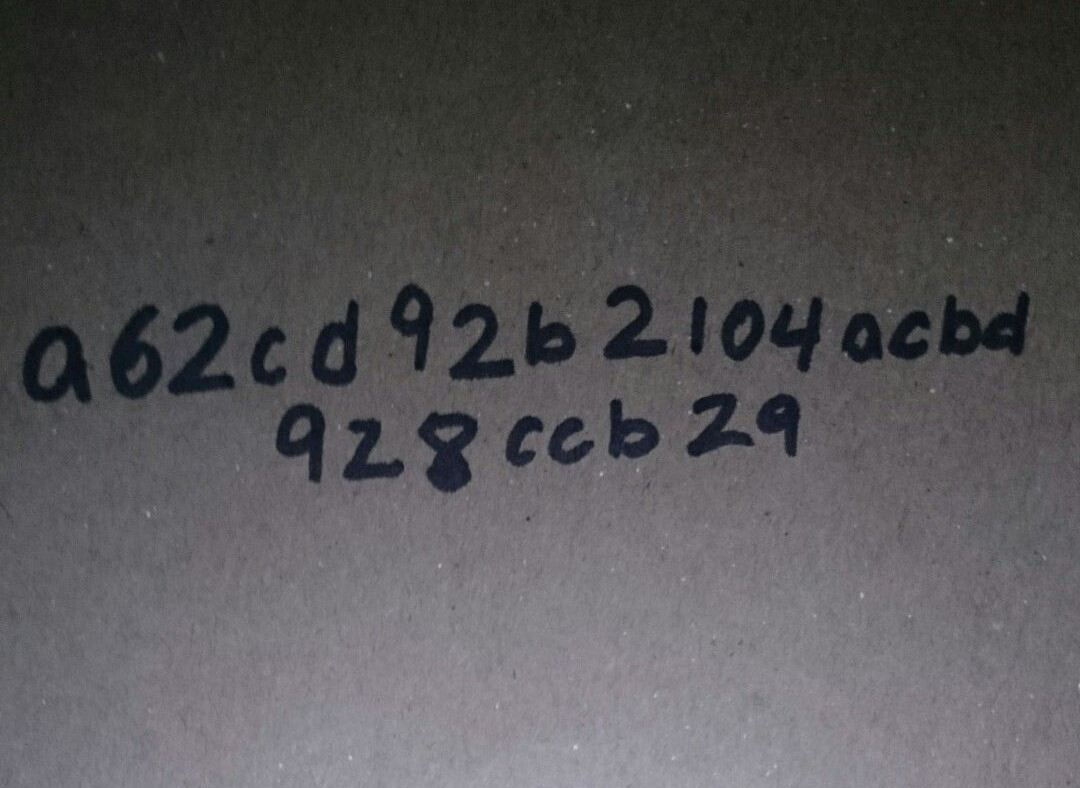 a62cd92b2104acbd
928ccb29